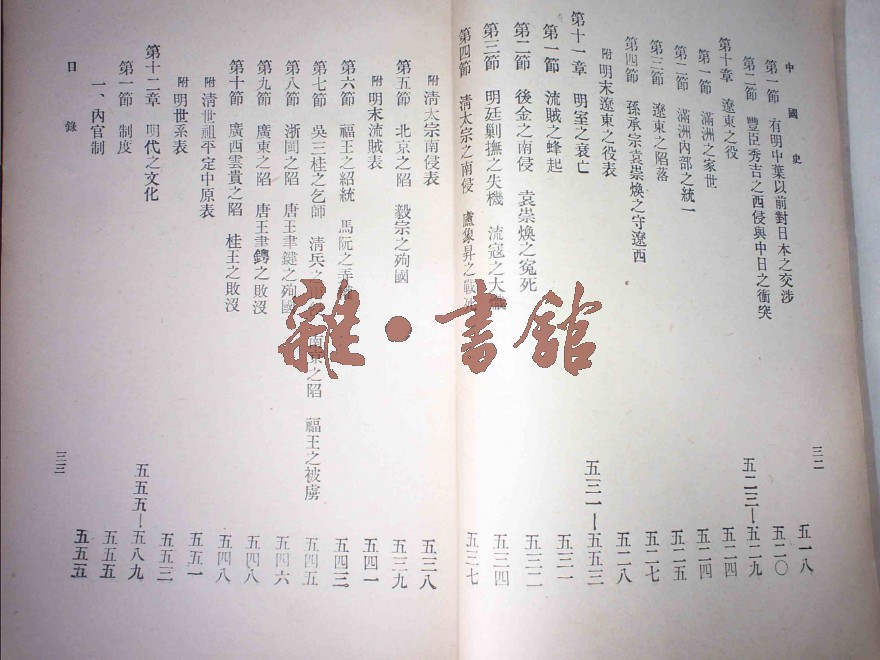 中國史
三二
第一節 有明中葉以前對日本之交涉 五一八
第二節 豐臣秀吉之西侵與中日之衝突 五二〇
第十章 遼東之役 五二三—五二九
第一節 滿洲之家世 五二四
第二節 滿洲內部之統一 五二五
第三節 遼東之陷落 五二七
第四節 孫承宗袁崇煥之守遼西 五二八
附 明末遼東之役表
第十一章 明室之衰亡 五三一—五五三
第一節 流賊之蜂起 五三一
第二節 後金之南侵 袁崇煥之冤死 五三二
第三節 明廷剿撫之失機 流寇之大 五三四
第四節 清太宗之南侵 盧象昇之戰死 五三七
附 清太宗南侵表 五三八
第五節 北京之陷 毅宗之殉國 五三九
附 明末流賊表 五四一
第六節 福王之紹統 馬阮之弄 五四三
第七節 吳三桂之乞師 清兵之 南京之陷 福王之被虜 五四五
第八節 浙閩之陷 唐王聿鍵之殉國 五四六
第九節 廣東之陷 唐王聿鐭之敗沒 五四八
第十節 廣西雲貴之陷 桂王之敗沒 五四八
附 清世祖平定中原表 五五一
附 明世系表 五五三
第十二章 明代之文化 五五五—五八九
第一節 制度 五五五
一、內官制 五五五
目錄
三三
雜·書館